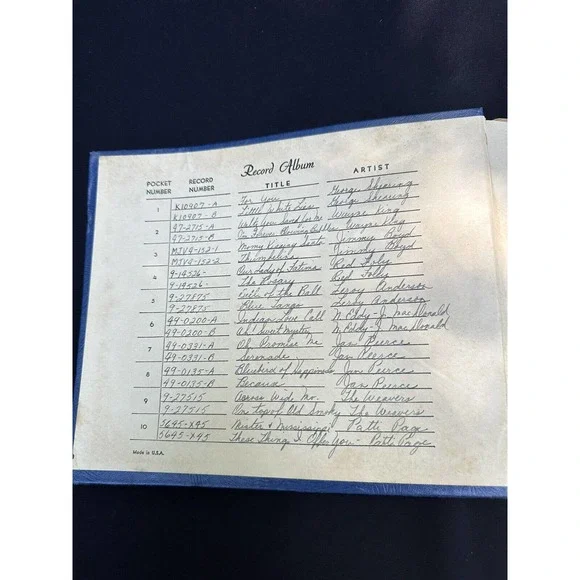 Record Album
POCKET NUMBER RECORD NUMBER TITLE ARTIST
1 K10907-A For You George Shearing
K10907-B Little White Lies George Shearing
2 47-2715-A Wayne King
47-2715-B Wayne King
3 MJV4-152-1 Momy Kissing Santa Jimmy Boyd
MJV4-152-2 Thumbelina Jimmy Boyd
4 9-14526- Our Lady of Fatima Red Foley
9-14526- The Rosary Red Folly
5 9-27875 of the Ball Leroy Anderson
9-27875 Blue Tango Leroy Anderson
6 49-0200-A Indian Love Call N Eddy-J MacDonald
49-0200-B Ah! Sweet Mystery N Eddy-J MacDonald
7 49-0331-A Oh Promise Me Jan Peerce
49-0331-B Serenade Jan Peerce
8 49-0135-A Bluebird of Happiness Jan Peerce
49-0135-B Because Jan Peerce
9 9-27515 Across Wide Mo. The Weavers
9-27515 On top of Old Smoky The Weavers
10 5645-X45 Mister & Mississippi Patti Page
5645-X45 These Things I Offer You - Patti Page
Made in U.S.A.